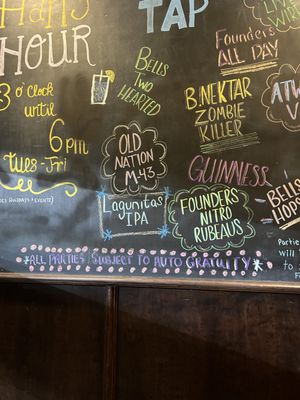 Happy
HOUR
3 o'Clock
until
6pm
Tues-Fri
TAP
Bells
Two
Hearted
Founders
ALL DAY
B. NEKTAR
ZOMBIE
KILLER
ATW
V
OLD
NATION
M-43
GUINNESS
Lagunitas
IPA
FOUNDERS
NITRO
RUBEAUS
BELLS
HOPS
*ALL PARTIES SUBJECT TO AUTO GRATUITY*
Partie
will
to